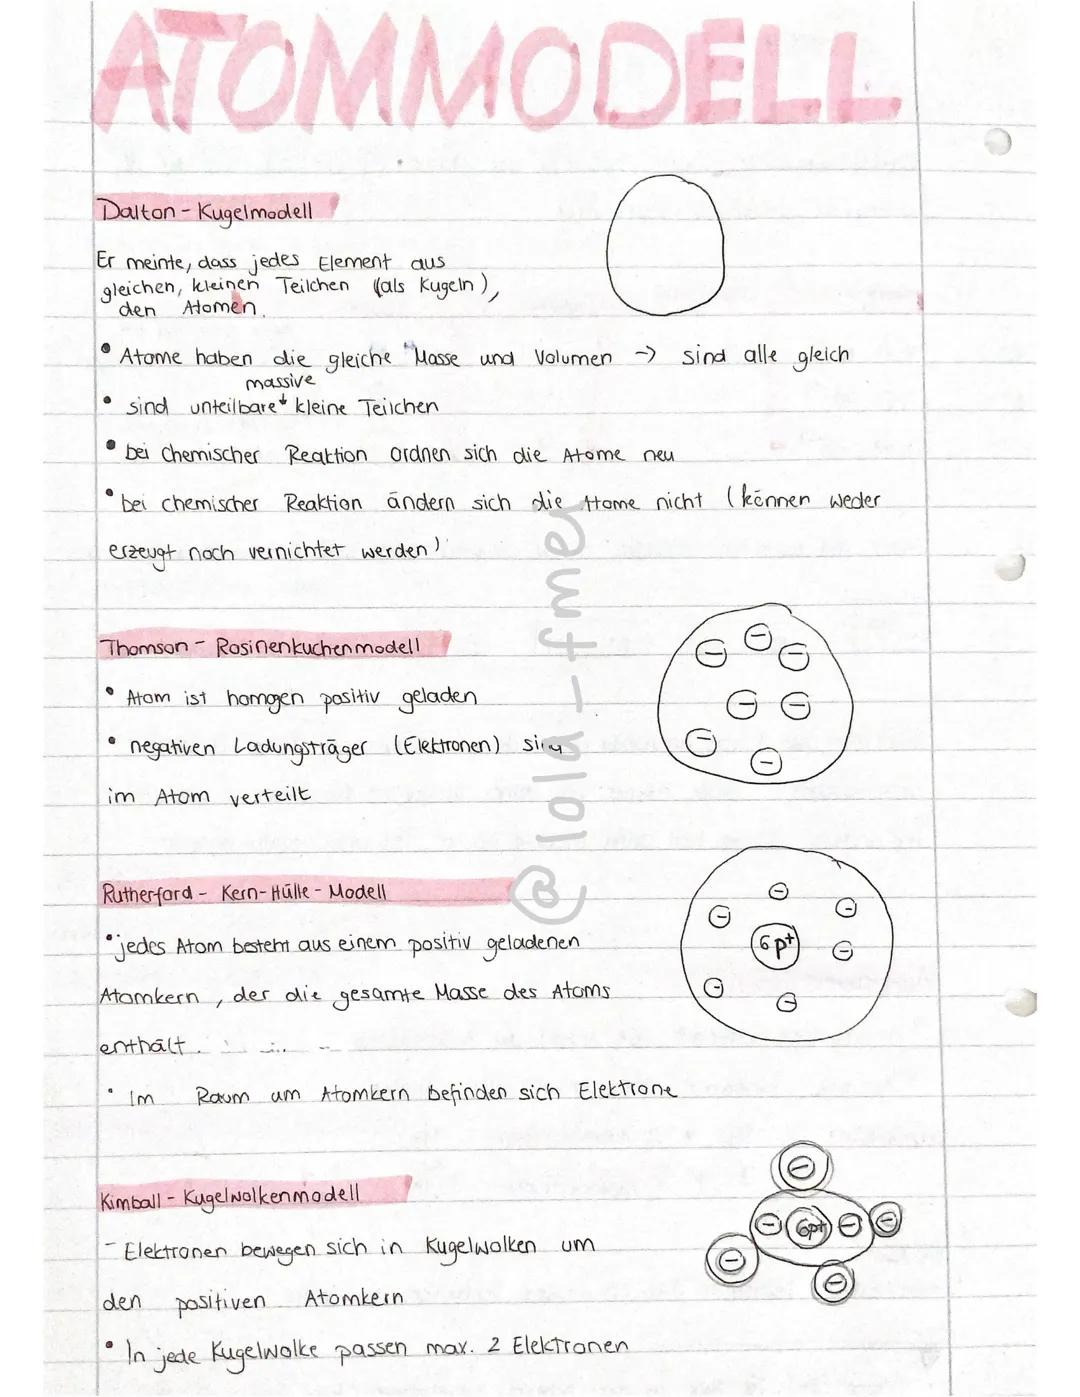 ATOMMODELL
Dalton - Kugelmodell
Er meinte, dass jedes Element aus
gleichen, kleinen Teilchen (als Kugeln),
den Atomen.
• Atome haben die gleiche Masse und Volumen → sind alle gleich
massive
• sind unteilbare kleine Teilchen
• bei chemischer Reaktion ordnen sich die Atome neu
• bei chemischer Reaktion ändern sich die Atome nicht (können weder
erzeugt noch vernichtet werden)
Thomson - Rosinenkuchenmodell
• Atom ist homogen positiv geladen
• negativen Ladungsträger (Elektronen) sind
im Atom verteilt
@lola-fmey
Rutherford - Kern-Hülle-Modell
6p+
• jedes Atom besteht aus einem positiv geladenen
Atomkern, der die gesamte Masse des Atoms
enthält.
• Im Raum um Atomkern befinden sich Elektrone
Kimball - Kugelwolkenmodell
6p+
- Elektronen bewegen sich in Kugelwolken um
den positiven Atomkern
• In jede Kugelwolke passen max. 2 Elektronen